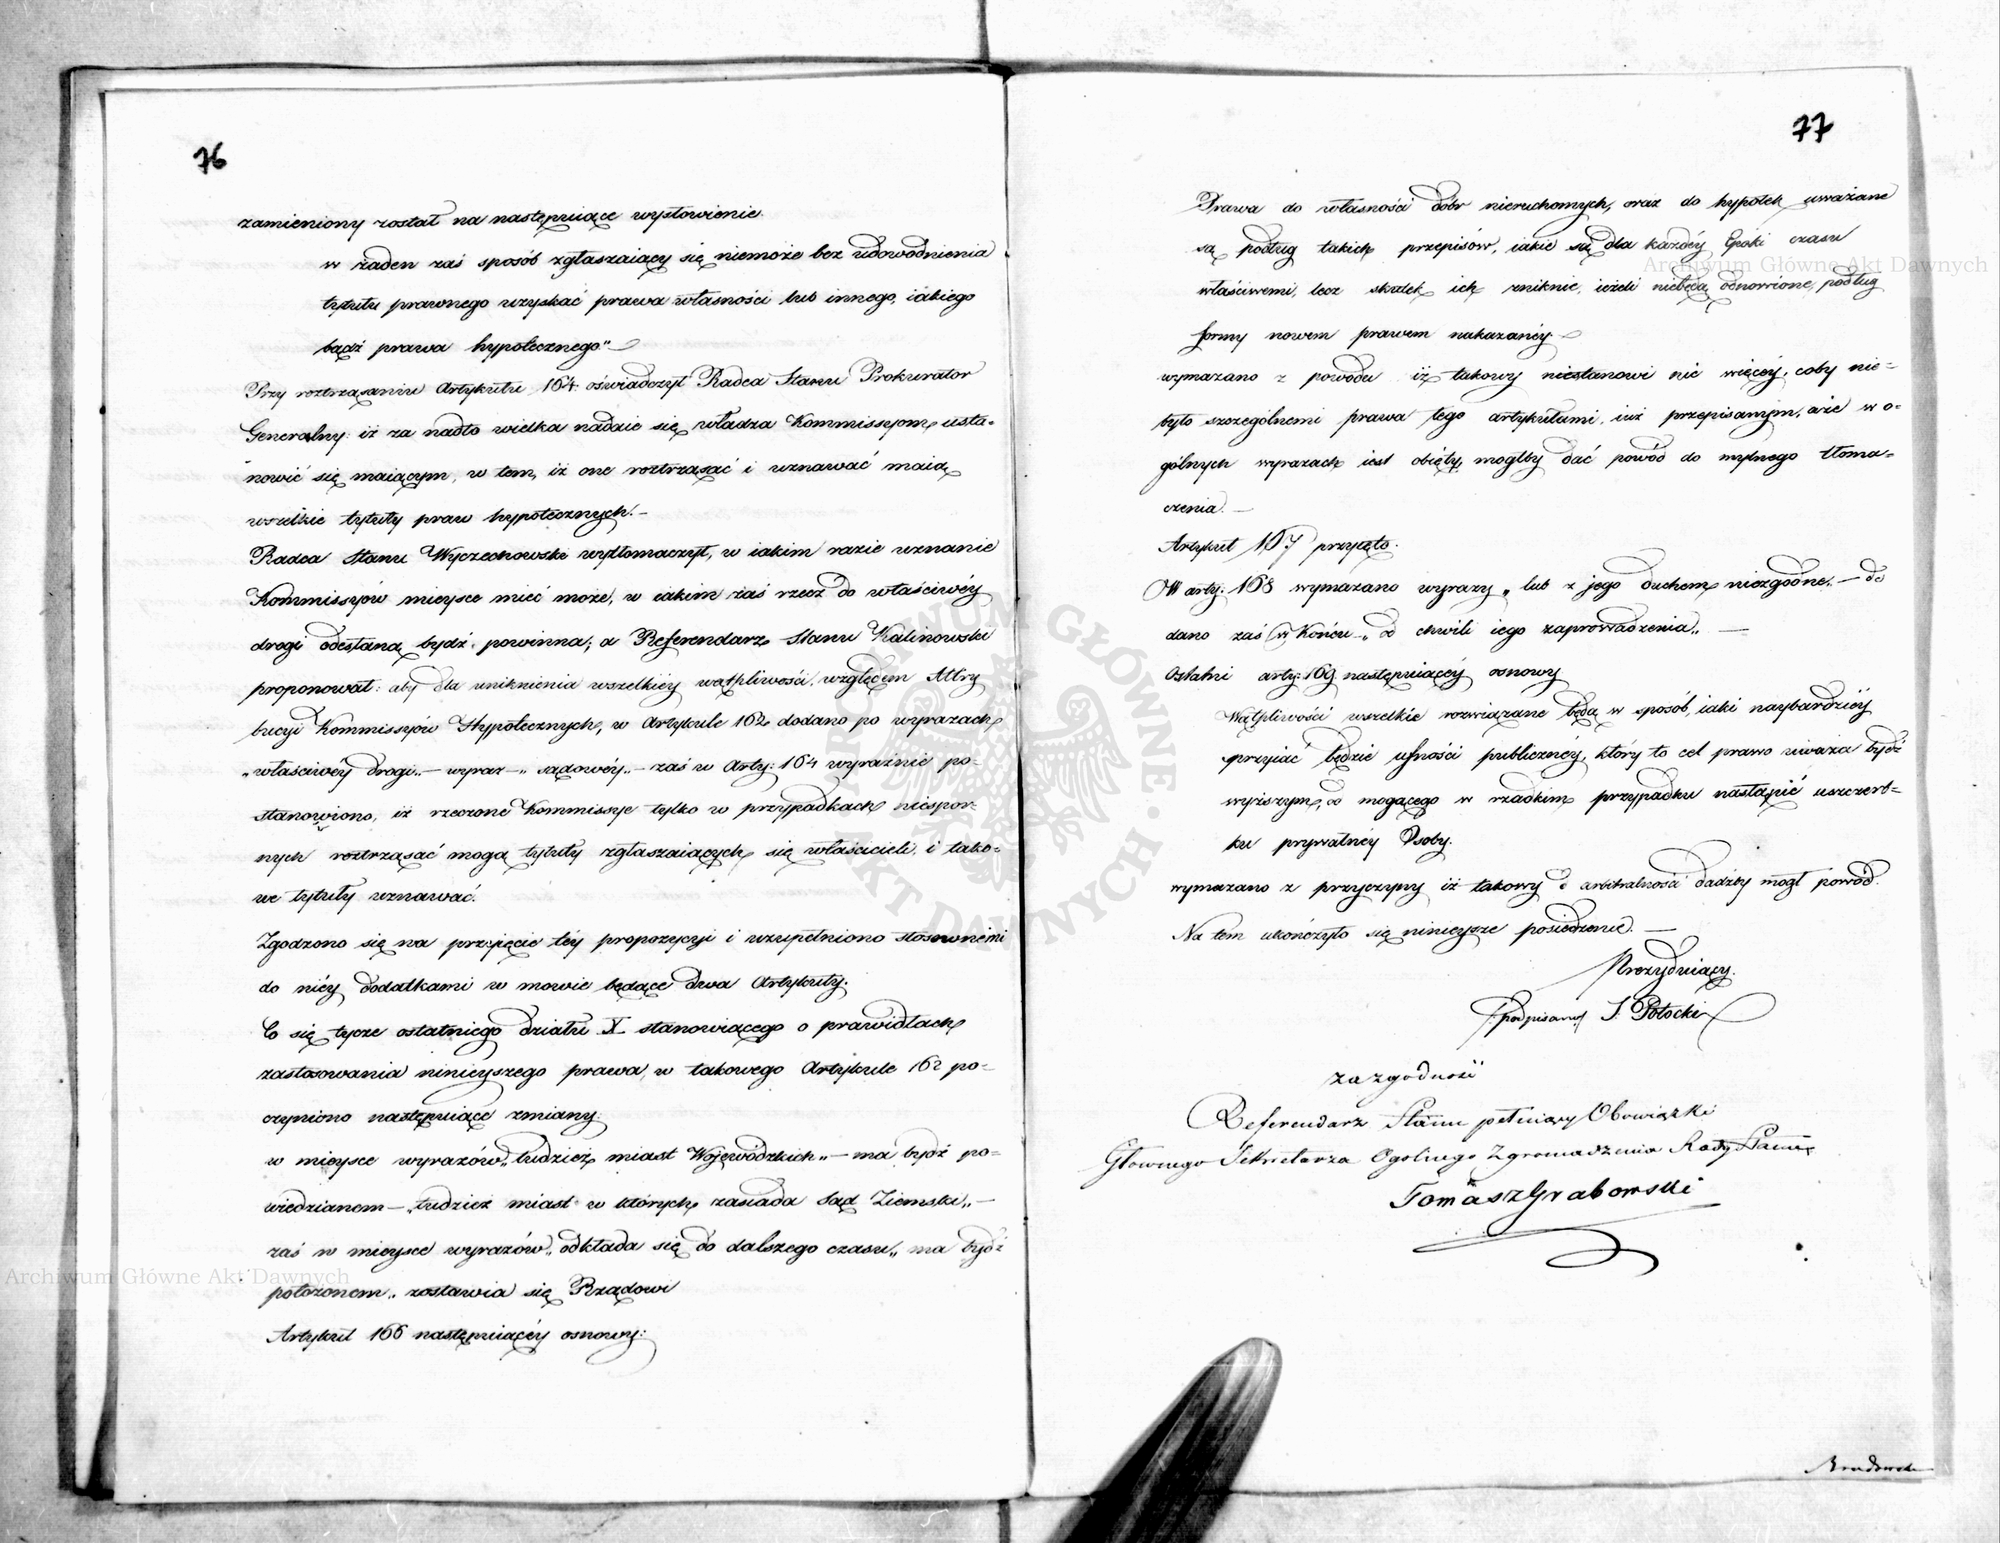 76
zamieniony został na następuiące wysłowienie.
w żaden zaś sposób zgłaszaiący się niemoże bez udowodnienia
tytułu prawnego uzyskać prawa własności lub innego, iakiego
bądź prawa hypotecznego"
Przy roztrząsaniu Artykułu 164 oświadczył Radca Stanu Prokurator
Generalny: iż za nadto wielka nadaie się władza Kommissyom usta-
nowić się maiącym, w tem, iż one roztrząsać i uznawać maią
wszelkie tytuły praw hypotecznych.-
Radca Stanu Wyczechowski wytłomaczył, w iakim razie uznanie
Kommissyów mieysce mieć może, w iakim zaś rzecz do właściwéy
drogi odesłaną bydź powinna; a Referendarz Stanu Kalinowski
proponował: aby dla uniknienia wszelkiéy wątpliwości, względem Attry
bucyi Kommissyów Hypotecznych, w Artykule 162 dodano po wyrazach
„właściwéy drogi„ — wyraz — „sądowéy„ — zaś w Arty: 164 wyraźnie po-
stanowiono, iż rzeczone Kommissye tylko w przypadkach niespor-
nych roztrząsać mogą tytuły zgłaszaiących się właścicieli, i tako-
we tytuły uznawać.
Zgodzono się na przyięcie téy propozycyi i uzupełniono stosownémi
do niéy dodatkami w mowie będące dwa Artykuły.
Co się tycze ostatniego działu X stanowiącego o prawidłach
zastosowania ninieyszego prawa, w takowego Artykule 162 po-
czyniono następuiące zmiany:
w mieysce wyrazów „tudzież miast Wojewódzkich„ — ma bydź po-
wiedzianem — „tudzież miast w których zasiada Sąd Ziemski„ —
zaś w mieysce wyrazów „odkłada się do dalszego czasu„ ma bydź
położonem „zostawia się Rządowi
Artykuł 166 następuiącéy osnowy:
77
Prawa do własności dóbr nieruchomych, oraz do hypotek uważane
są podług takich przepisów, iakie są dla każdéy Epoki czasu
właściwemi, lecz skutek ich zniknie, ieżeli niebędą odnowione, podług
formy nowem prawem nakazanéy. —
wymazano z powodu iż takowy niestanowi nic więcéy, coby nie-
było szczególnemi prawa tego artykułami, iuż przepisanym, a że w o-
gólnych wyrazach iest obięty, mogłby dać powód do mylnego tłoma-
czenia. —
Artykuł 167 przyięto.
W arty: 168 wymazano wyrazy „lub z jego duchem niezgodne„ — do
dano zaś w końcu — „od chwili iego zaprowadzenia„ —
Ostatni arty: 169 następuiącéy osnowy
Wątpliwości wszelkie rozwiązane będą w sposób, iaki naybardziéy
sprzyiać będzie ufności publicznéy, który to cel prawo uważa bydź
wyższym, od mogącego w rzadkim przypadku nastąpić uszczerb-
ku prywatnéy Osoby.
wymazano z przyczyny iż takowy do arbitralności dadźby mogł powód.
Na tém ukończyło się ninieysze posiedzenie. —
Prezyduiący.
(podpisany) S. Potocki
za zgodność
Referendarz Stanu pełniący Obowiązki
Głównego Sekretarza Ogólnego Zgromadzenia Rady Stanu
Tomasz Grabowski
Archiwum Główne Akt Dawnych
Archiwum Główne Akt Dawnych
ARCHIWUM GŁÓWNE · AKT DAWNYCH ·